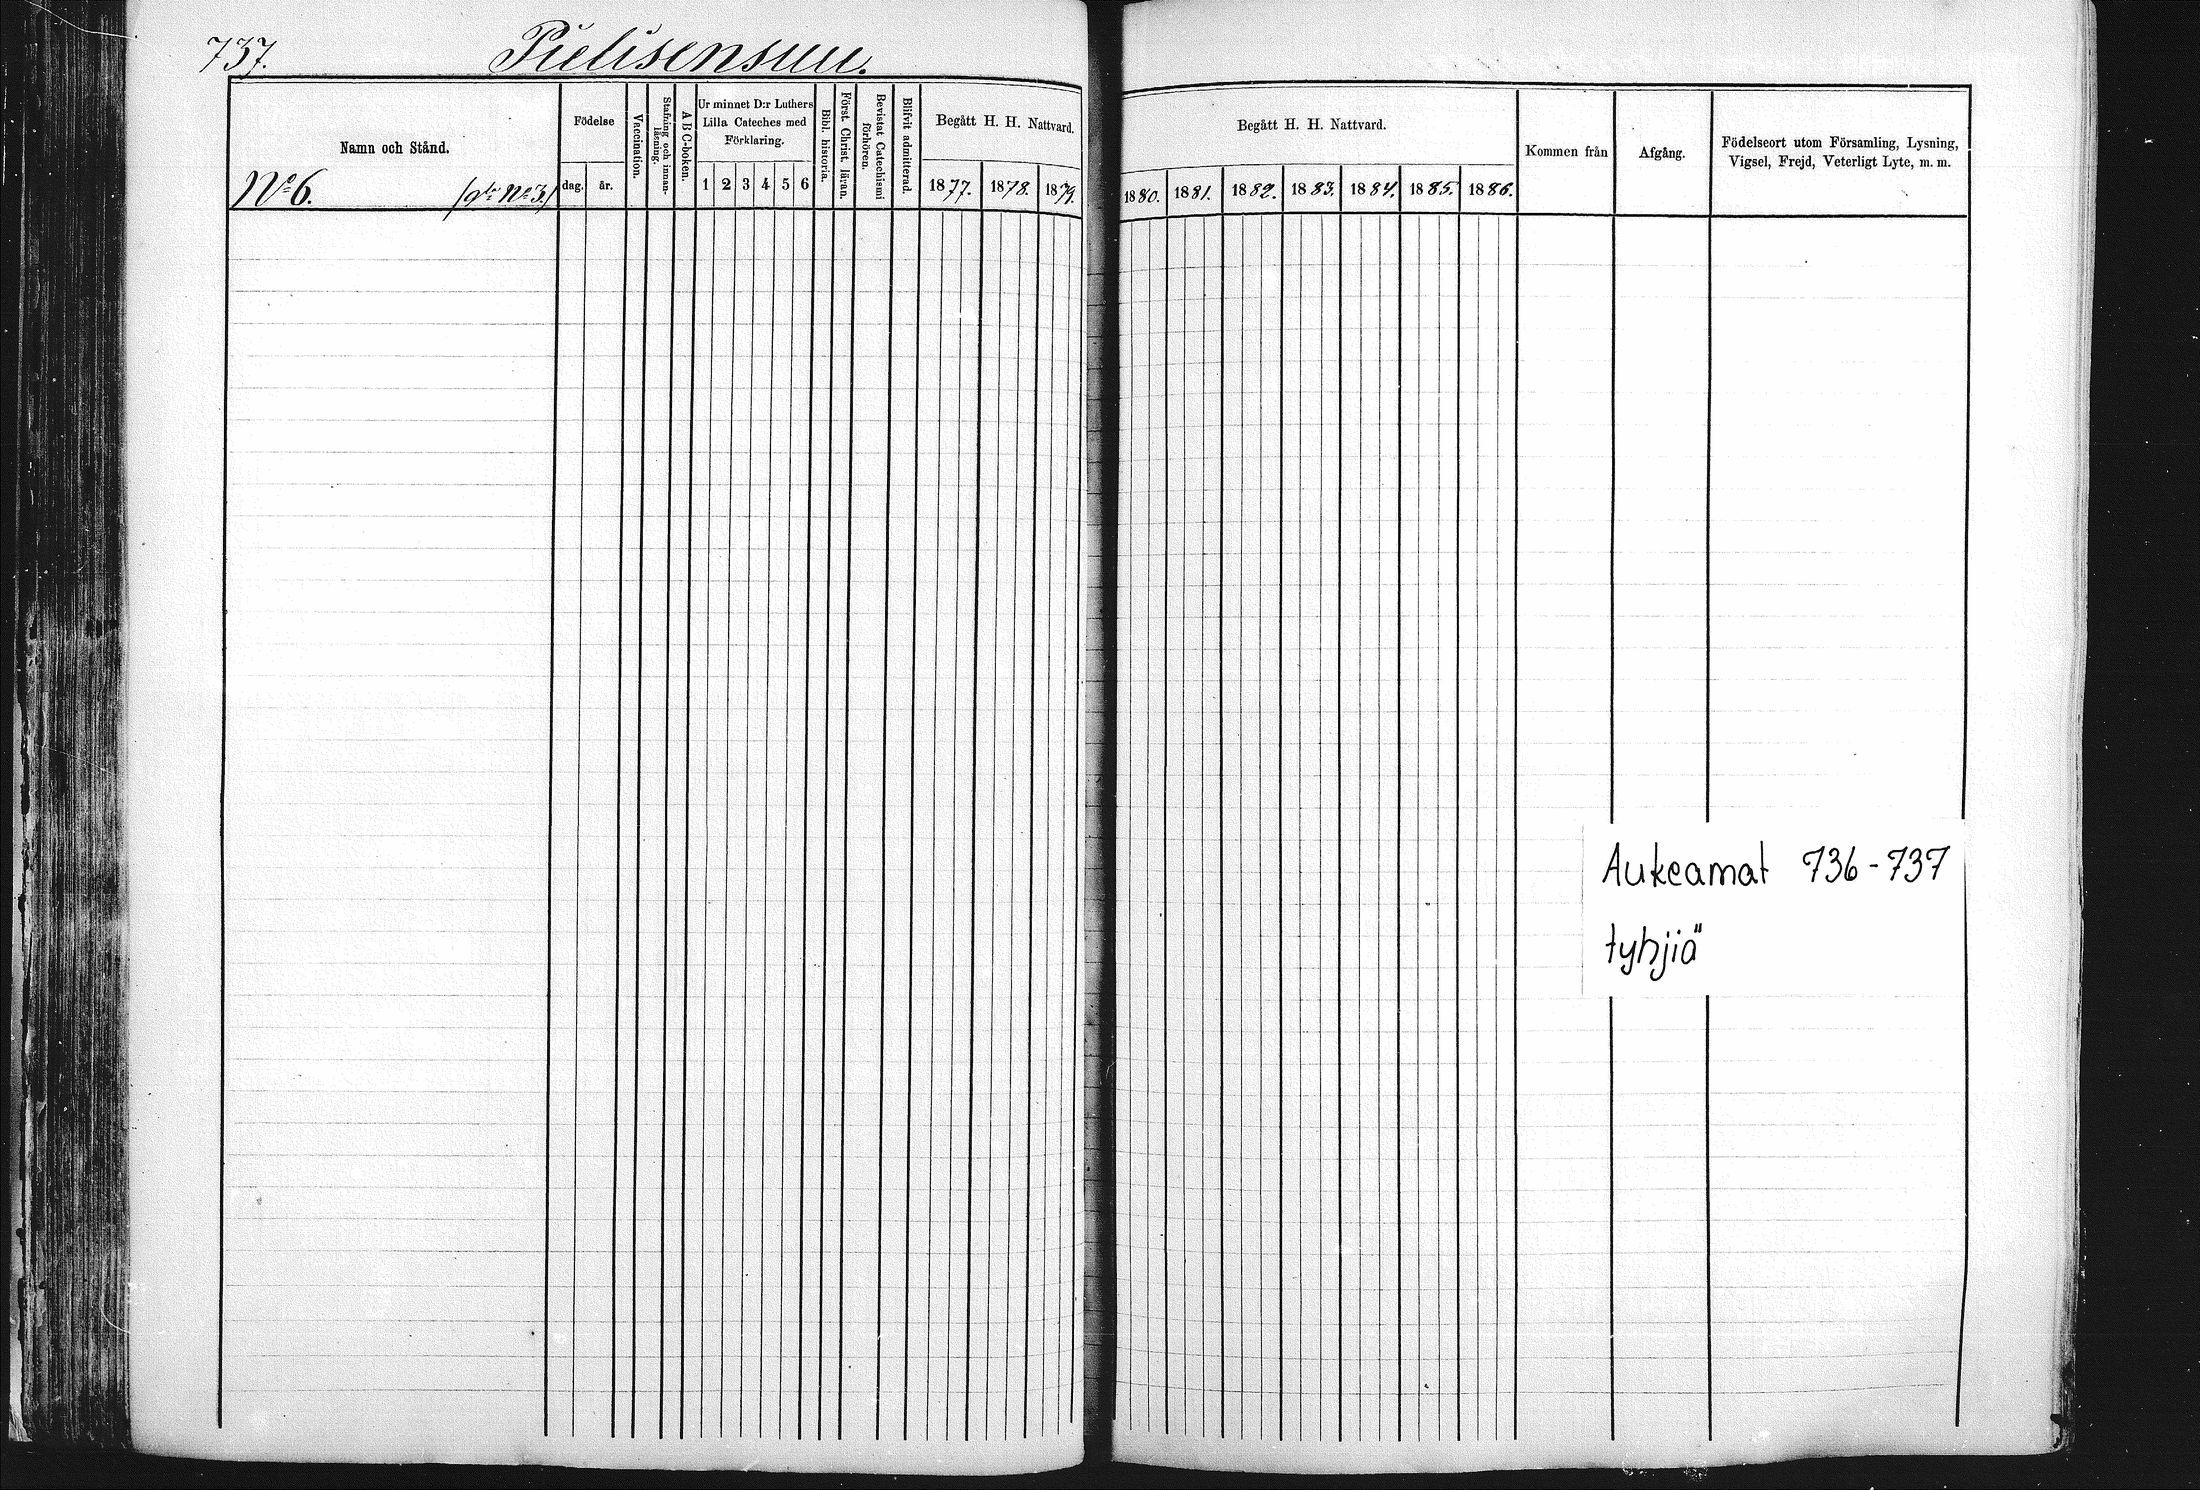 737. Pielisensuu.
Namn och Stånd.
No 6. /gla No 3./
Födelse
dag. år.
Vaccination.
Stafning och innan-
läsning.
ABC-boken.
Ur minnet D:r Luthers
Lilla Cateches med
Förklaring.
1 2 3 4 5 6
Bibl. historia.
Först. Christ. läran.
Bevistat Catechismi
förhören.
Blifvit admitterad.
Begått H. H. Nattvard.
1877. 1878. 1879.
Begått H. H. Nattvard.
1880. 1881. 1882. 1883. 1884. 1885. 1886.
Kommen från
Afgång.
Födelseort utom Församling, Lysning,
Vigsel, Frejd, Veterligt Lyte, m. m.
Aukeamat 736-737
tyhjiä